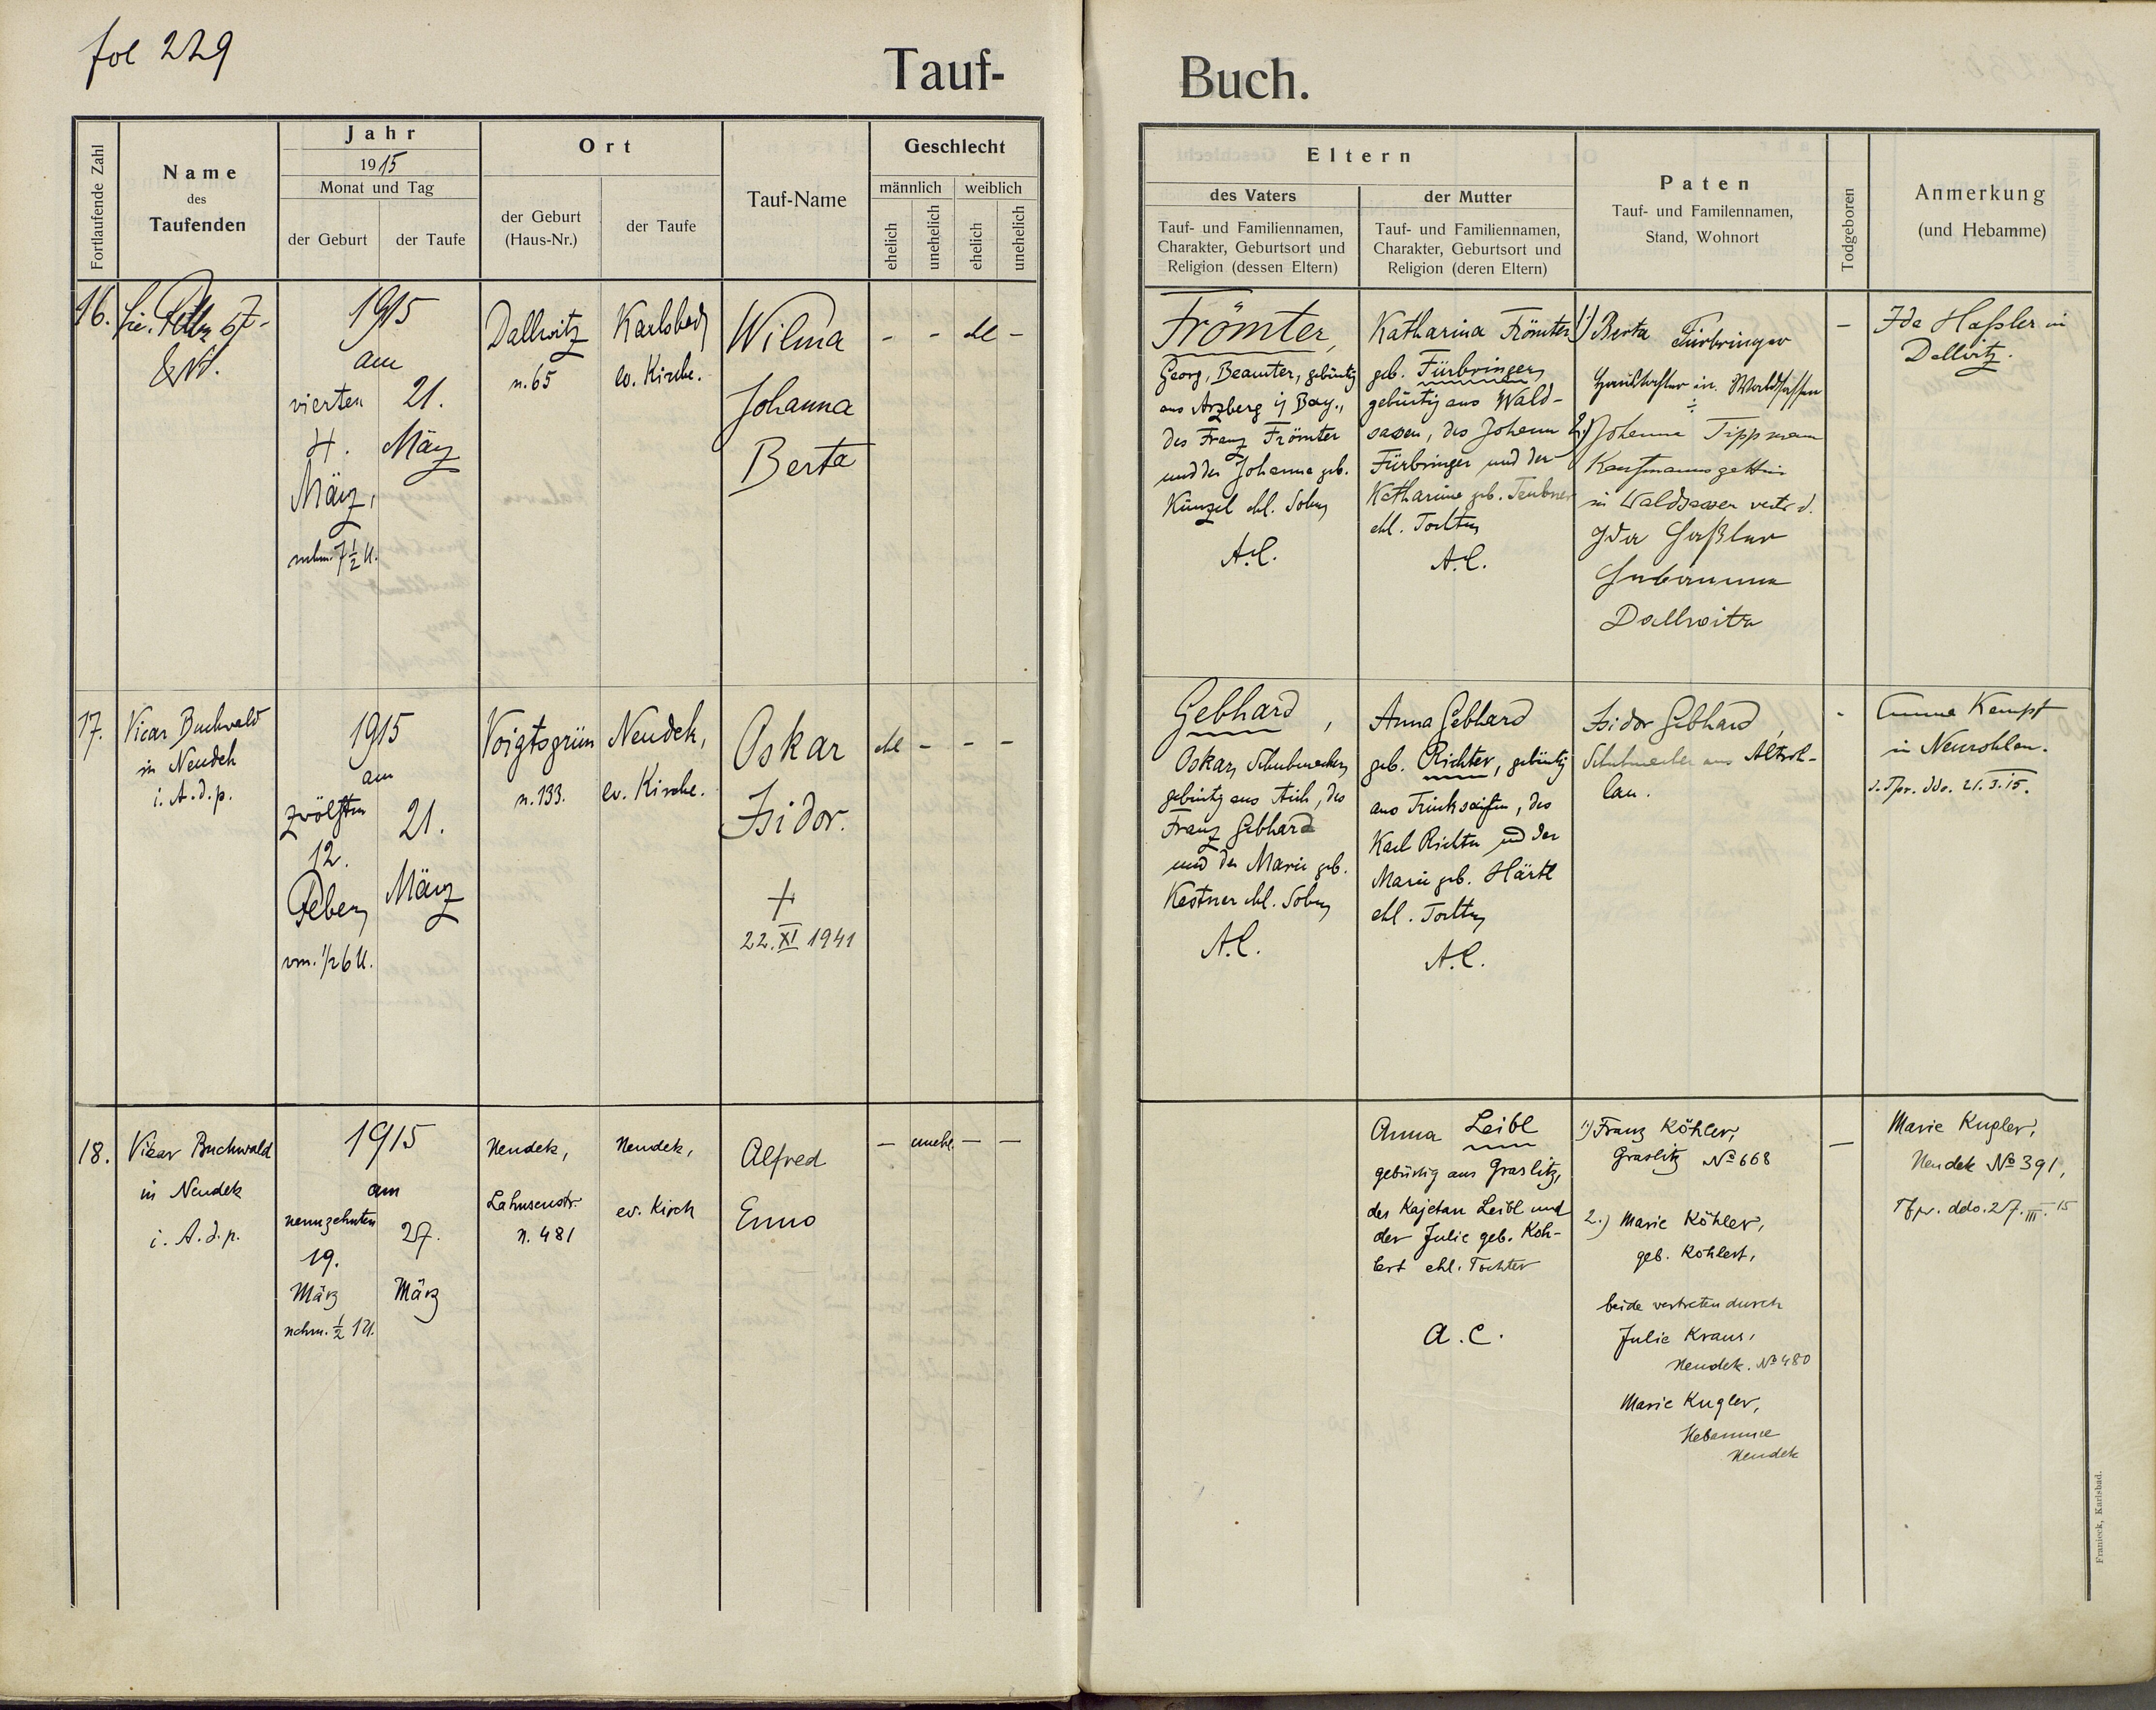 fol 229
Tauf-
Buch.
Fortlaufende Zahl
Name
des
Taufenden
Jahr
1915
Monat und Tag
der Geburt
der Taufe
Ort
der Geburt
(Haus-Nr.)
der Taufe
Tauf-Name
Geschlecht
männlich
weiblich
ehelich
unehelich
ehelich
unehelich
Eltern
des Vaters
Tauf- und Familiennamen,
Charakter, Geburtsort und
Religion (dessen Eltern)
der Mutter
Tauf- und Familiennamen,
Charakter, Geburtsort und
Religion (deren Eltern)
Paten
Tauf- und Familennamen,
Stand, Wohnort
Todgeboren
Anmerkung
(und Hebamme)
16.
1915
am
vierten
4.
März,
nchm. 7½ U.
21.
März
Dallwitz
n. 65
Karlsbad
ev. Kirche.
Wilma
Johanna
Berta
- - ehl -
Frömter,
Georg, Beamter, gebürtig
aus Arzberg i/ Bay.,
des Franz Frömter
und der Johanna geb.
Künzel ehl. Sohn
A.C.
Katharina Frömter
geb. Fürbringer,
gebürtig aus Wald-
sassen, des Johann
Fürbringer und der
Katharina geb. Teubner
ehl. Tochter
A.C.
1) Berta Fürbringer
in Waldsassen
2.) Johanna Tippmann
Kaufmannsgattin
in Waldsassen vertr. d.
Ida Haßler
Hebamme
Dallwitz
-
Ida Haßler in
Dallwitz.
17.
Vicar Buchwald
in Neudek
i. A. d. p.
1915
am
zwölften
12.
Feber,
vm. 1/2 6 U.
21.
März
Voigtsgrün
n. 133.
Neudek,
ev. Kirche.
Oskar
Isidor.
+
22. XI 1941
ehl - - -
Gebhard,
Oskar, Schuhmacher,
gebürtig aus Aich, des
Franz Gebhard
und der Marie geb.
Kestner ehl. Sohn
A.C.
Anna Gebhard
geb. Richter, gebürtig
aus Trinksaifen, des
Karl Richter und der
Marie geb. Härtl
ehl. Tochter
A.C.
Isidor Gebhard,
Schuhmacher aus Altroh-
lau.
-
Anna Kempf
in Neurohlau.
ddo. 21.3.15.
18.
Vikar Buchwald
in Neudek
i. A. d. p.
1915
am
neunzehnten
19.
März
nchm. ½ 1 U.
27.
März
Neudek,
Lahnsenstr.
n. 481
Neudek,
ev. Kirch
Alfred
Enno
- unehl. - -
Anna Leibl
gebürtig aus Graslitz,
des Kajetan Leibl und
der Julie geb. Köh-
lert ehl. Tochter
A.C.
1) Franz Köhler,
Graslitz No 668
2.) Marie Köhler,
geb. Köhlert,
beide vertreten durch
Julie Kraus,
Neudek. No 480
Marie Kugler,
Hebamme
Neudek
-
Marie Kugler,
Neudek No 391,
Tfpr. ddo. 27. III. 15
Franieck, Karlsbad.